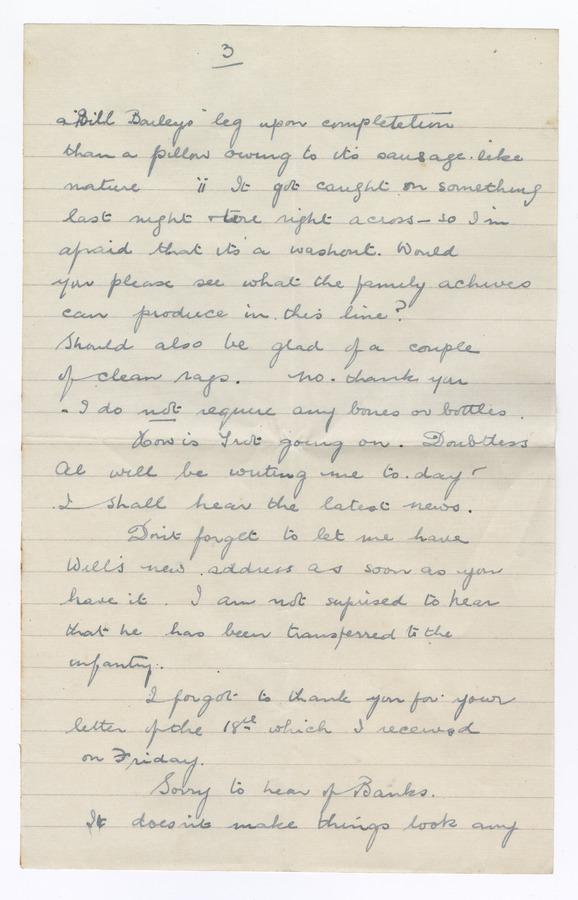 3
a "Bill Baileys" leg upon completetion
than a pillow owing to its sausage-like
nature !! It got caught on something
last night & tore right across - so I'm
afraid that its a washout. Would
you please see what the family achives
can produce in this line?
Should also be glad of a couple
of clean rags. No. thank you
- I do not require any bones or bottles.
How is Trot going on. Doubtless
Al will be writing me to-day &
I shall hear the latest news.
Don't forget to let me have
Will's new address as soon as you
have it. I am not suprised to hear
that he has been transferred to the
infantry.
I forgot to thank you for your
letter of the 18th which I received
on Friday.
Sorry to hear of Banks.
It doesn't make things look any